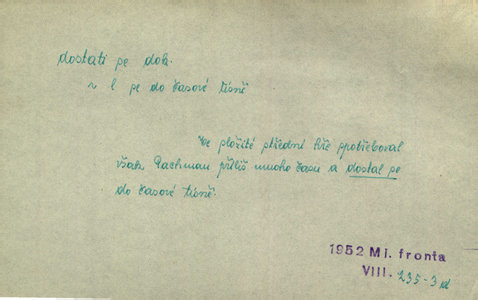 dostati se dok.
~ l se do časové tísně
Ve složité střední hře spotřeboval
však Pachman příliš mnoho času a dostal se
do časové tísně.
1952 Ml. fronta
VIII. 235-3